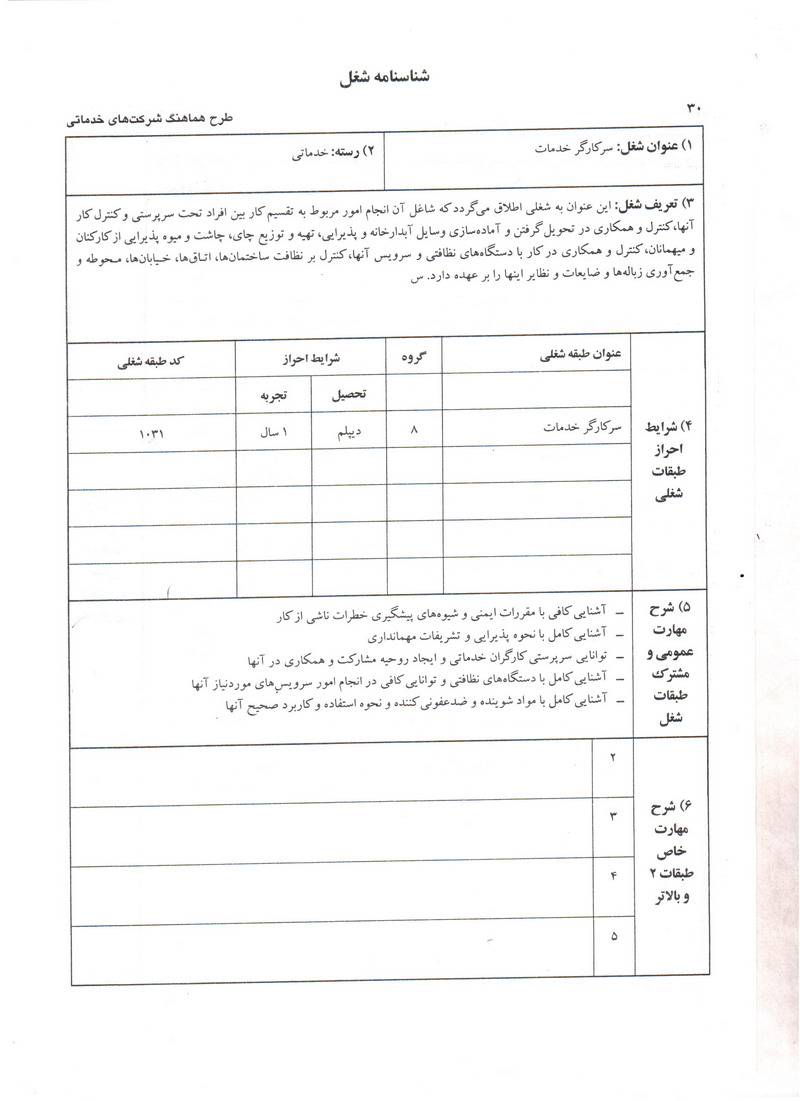 شناسنامه شغل
۳۰
طرح هماهنگ شرکت‌های خدماتی
۱) عنوان شغل: سرکارگر خدمات
۲) رسته: خدماتی
۳) تعریف شغل: این عنوان به شغلی اطلاق می‌گردد که شاغل آن انجام امور مربوط به تقسیم کار بین افراد تحت سرپرستی و کنترل کار
آنها، کنترل و همکاری در تحویل گرفتن و آماده‌سازی وسایل آبدارخانه و پذیرایی، تهیه و توزیع چای، چاشت و میوه پذیرایی از کارکنان
و میهمانان، کنترل و همکاری در کار با دستگاه‌های نظافتی و سرویس آنها، کنترل بر نظافت ساختمان‌ها، اتاق‌ها، خیابان‌ها، محوطه و
جمع‌آوری زباله‌ها و ضایعات و نظایر اینها را بر عهده دارد. س
۴) شرایط
احراز
طبقات
شغلی
عنوان طبقه شغلی
گروه
شرایط احراز
کد طبقه شغلی
تحصیل
تجربه
سرکارگر خدمات
۸
دیپلم
۱ سال
۱۰۳۱
۵) شرح
مهارت
عمومی و
مشترک
طبقات
شغل
– آشنایی کافی با مقررات ایمنی و شیوه‌های پیشگیری خطرات ناشی از کار
– آشنایی کامل با نحوه پذیرایی و تشریفات مهمانداری
– توانایی سرپرستی کارگران خدماتی و ایجاد روحیه مشارکت و همکاری در آنها
– آشنایی کامل با دستگاه‌های نظافتی و توانایی کافی در انجام امور سرویس‌های موردنیاز آنها
– آشنایی کامل با مواد شوینده و ضدعفونی کننده و نحوه استفاده و کاربرد صحیح آنها
۶) شرح
مهارت
خاص
طبقات ۲
و بالاتر
۲
۳
۴
۵